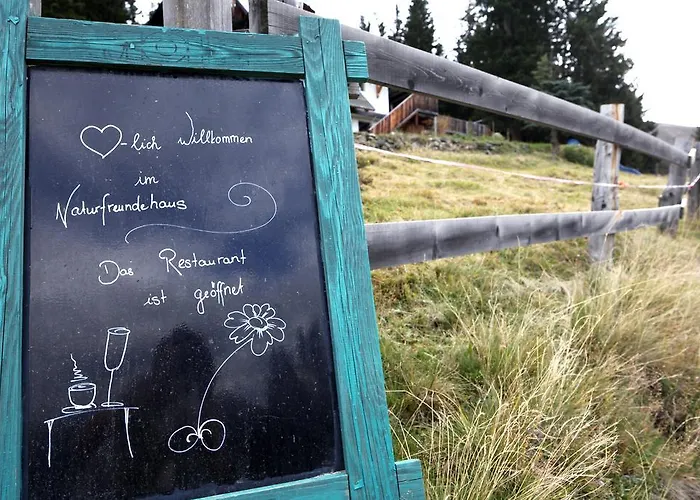 ♡-lich Willkommen
im
Naturfreundehaus
Das Restaurant
ist geöffnet